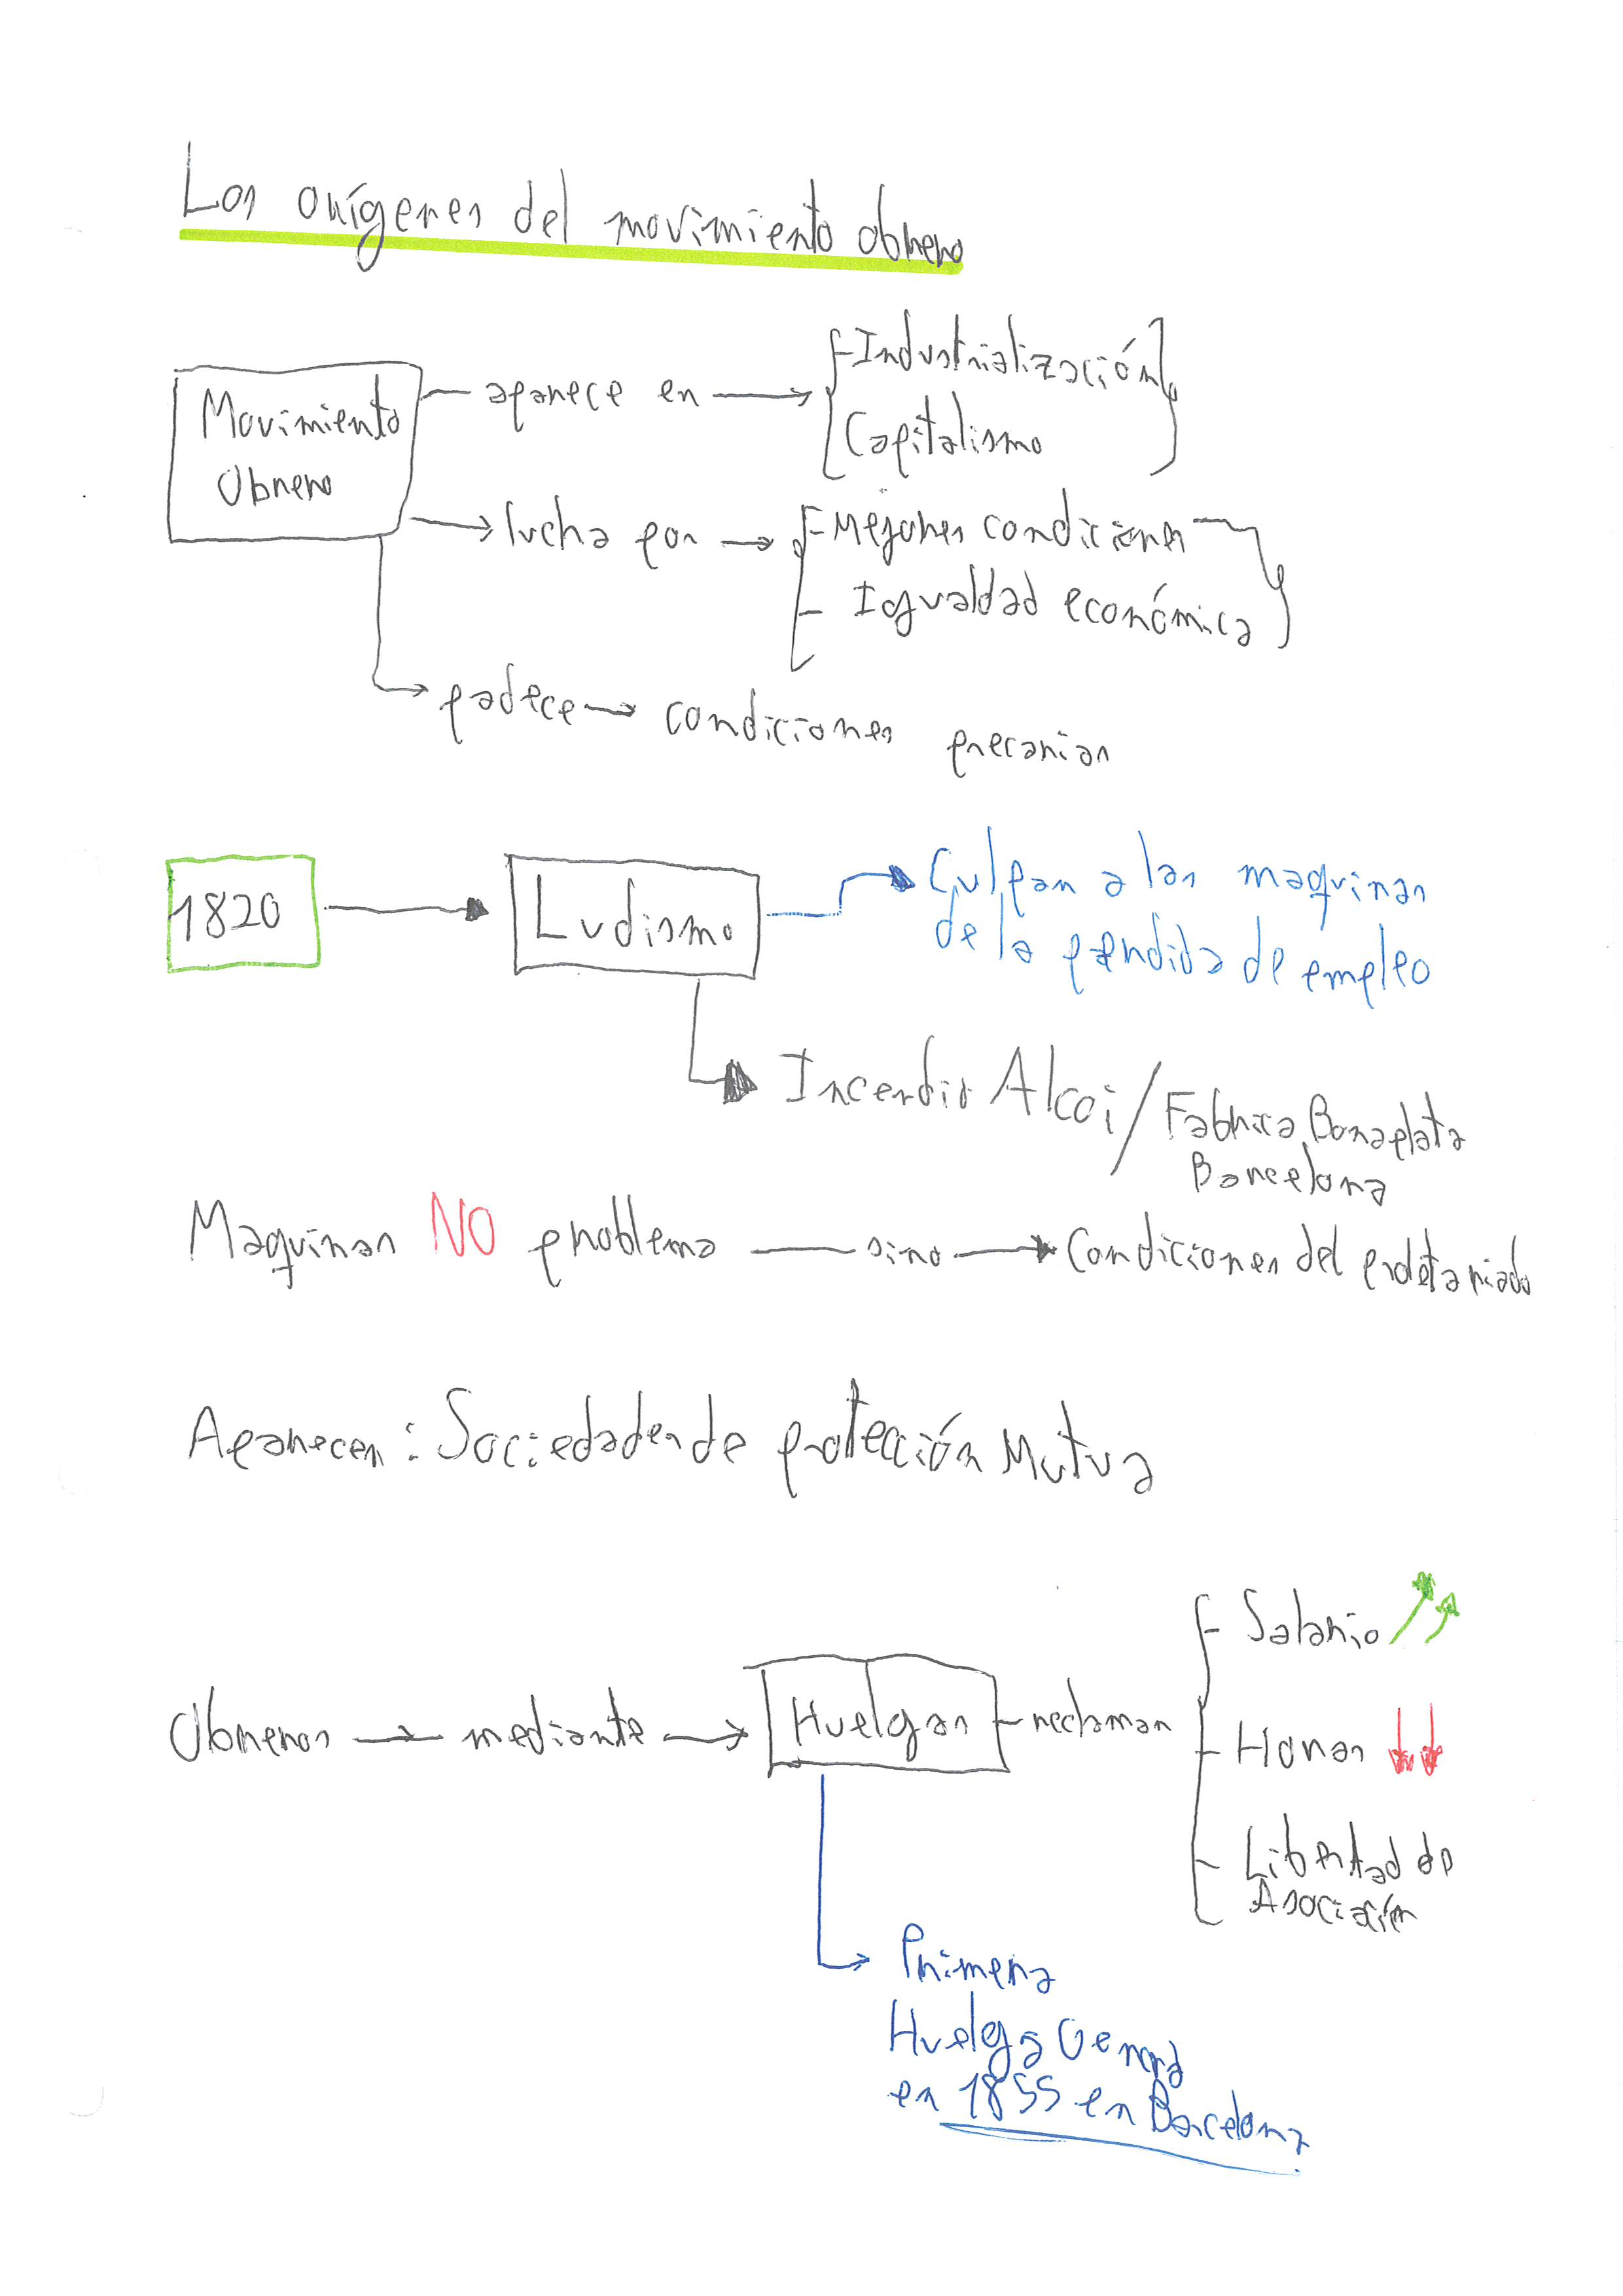 Los orígenes del movimiento obrero
Movimiento
Obrero
aparece en
- Industrialización
Capitalismo
lucha por
- Mejores condiciones
- Igualdad económica
padece
condiciones precarias
1820
Ludismo
Culpan a las maquinas
de la perdida de empleo
Incendio Alcoi / Fabrica Bonaplata
Barcelona
Maquinas NO problema
sino
Condiciones del proletariado
Aparecen : Sociedades de protección Mutua
Obreros
mediante
Huelgas
reclaman
- Salario
- Horas
- Libertad de
Asociación
Primera
Huelga General
en 1855 en Barcelona